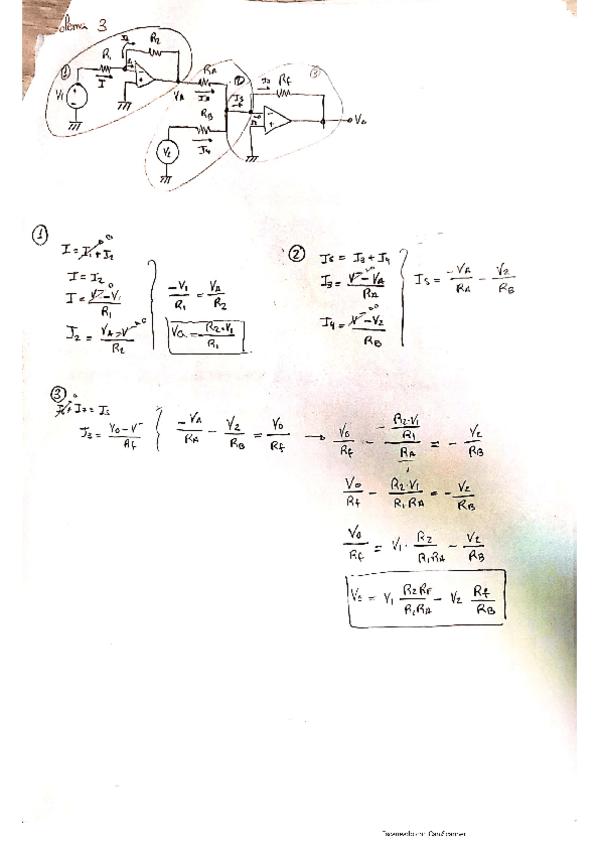 lema 3
R₁ I₂ R₂
① I V₁
VA RA I₃ RB V₂ I₄
② I₅ Rf ③ Vo
①
I = I₁ + I₂
I = I₂
I = V⁻ - V₁ / R₁
I₂ = VA - V⁻ / R₂
-V₁ / R₁ = VA / R₂
Va = R₂·V₁ / R₁
②
I₅ = I₃ + I₄
I₃ = V⁻ - VA / RA
I₄ = V⁻ - V₂ / RB
I₅ = -VA / RA - V₂ / RB
③
Vo - V⁻ / Rf
-VA / RA - V₂ / RB = Vo / Rf → Vo / Rf - R₂·V₁ / R₁ / RA = - V₂ / RB
Vo / Rf - R₂·V₁ / R₁ RA = - V₂ / RB
Vo / Rf = V₁ · R₂ / R₁RA - V₂ / RB
Vo = V₁ R₂ RF / R₁ RA - V₂ Rf / RB
CamScanner